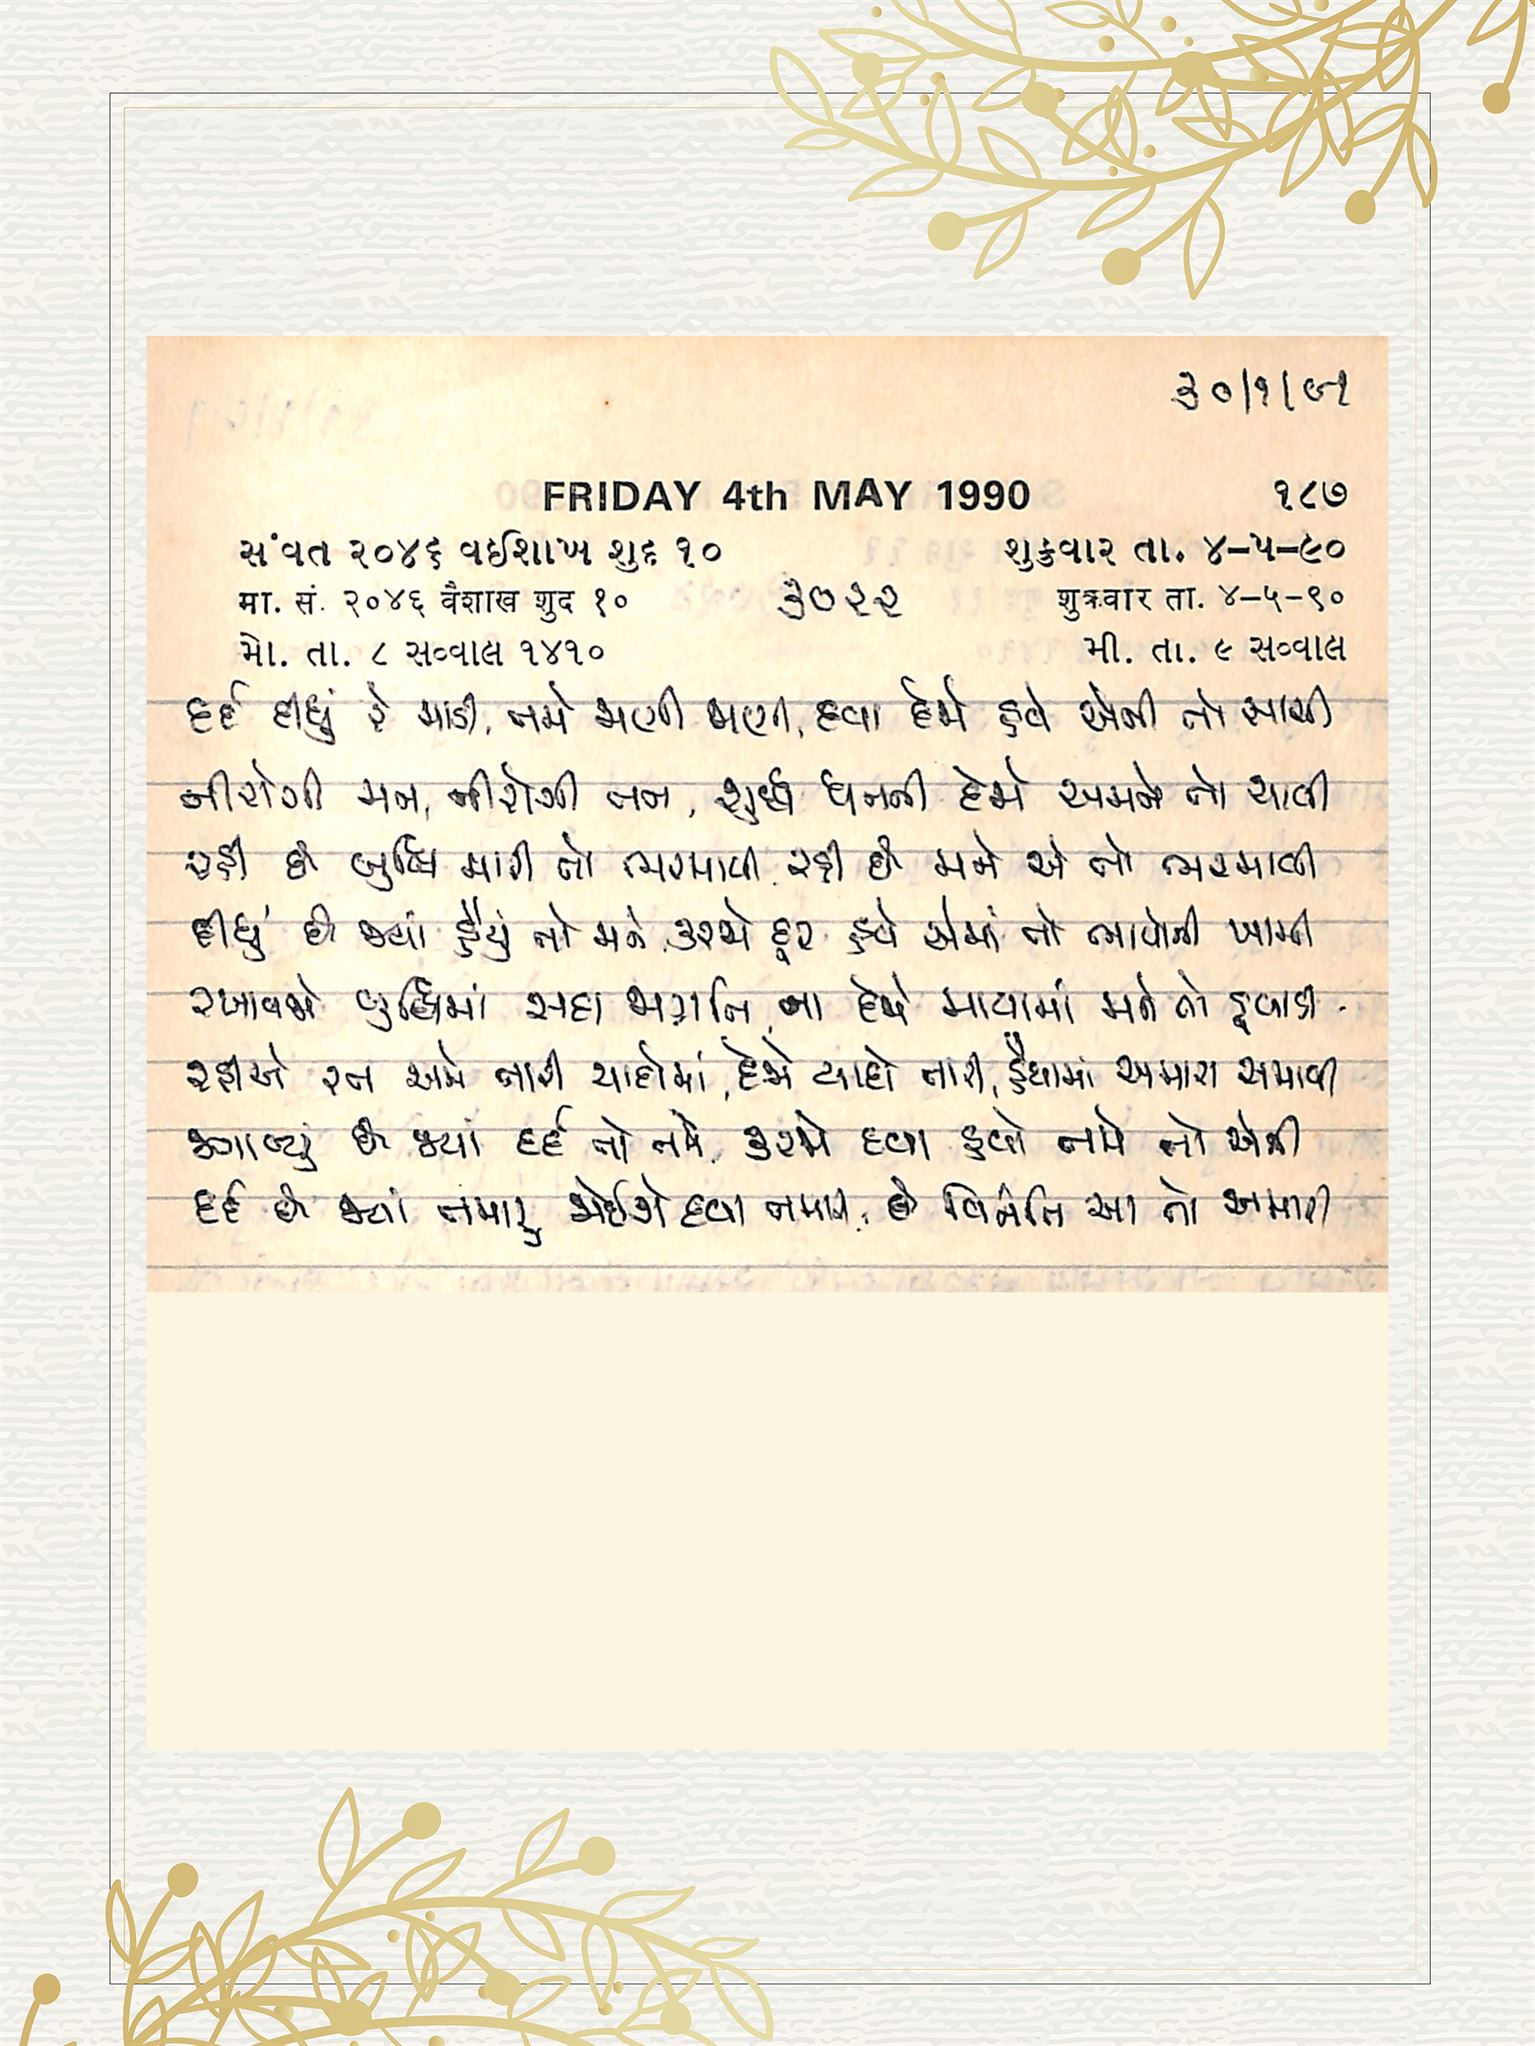 ૩૦/૧/૯૧
FRIDAY 4th MAY 1990 ૧૮૭
સંવત ૨૦૪૬ વઈશાખ શુદ ૧૦ શુક્રવાર તા. ૪-૫-૯૦
मा. सं. २०४६ वैशाख शुद १० ૩૦૨૨ शुक्रवार ता. ४-५-९०
મો. તા. ૮ સવ્વાલ ૧૪૧૦ મી. તા. ૯ સવ્વાલ
દર્દ દીધું રે માડી, તમે જાણી જાણી, દવા દેજે હવે એની તો સાચી
નીરોગી મન, નીરોગી તન, શુદ્ધ ધનની દેજે અમને તો
રહી છે બુદ્ધિ મારી તો ભરમાવી. રહી છે મને એ તો ભરમાવી
દીધું છે જ્યાં હૈયું તો મને, કરજે દૂર હવે એમાં તો ભાવોની ખામી
રખાવજે બુદ્ધિમાં સદા જાગ્રતિ, ના દેજે માયામાં મને તો ડુબાડી.
રહીએ રત અમે તારી યાદોમાં, દેજે યાદો તારી, હૈયામાં અમારા સમાવી
જગાવ્યું છે જ્યાં દર્દ તો તમે, કરજો દવા હવે તમે તો એની
દર્દ છે જ્યાં તમારું જોઈશે દવા તમારી, છે વિનંતિ આ તો અમારી